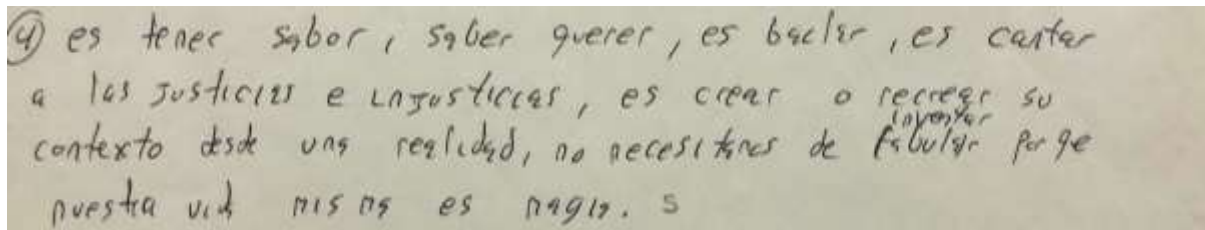 4) es tener sabor, saber querer, es bailar, es cantar
a las justicias e injusticias, es crear o recrear su
inventar
contexto desde una realidad, no necesitamos de fabular porqe
nuestra vida misma es magia. S